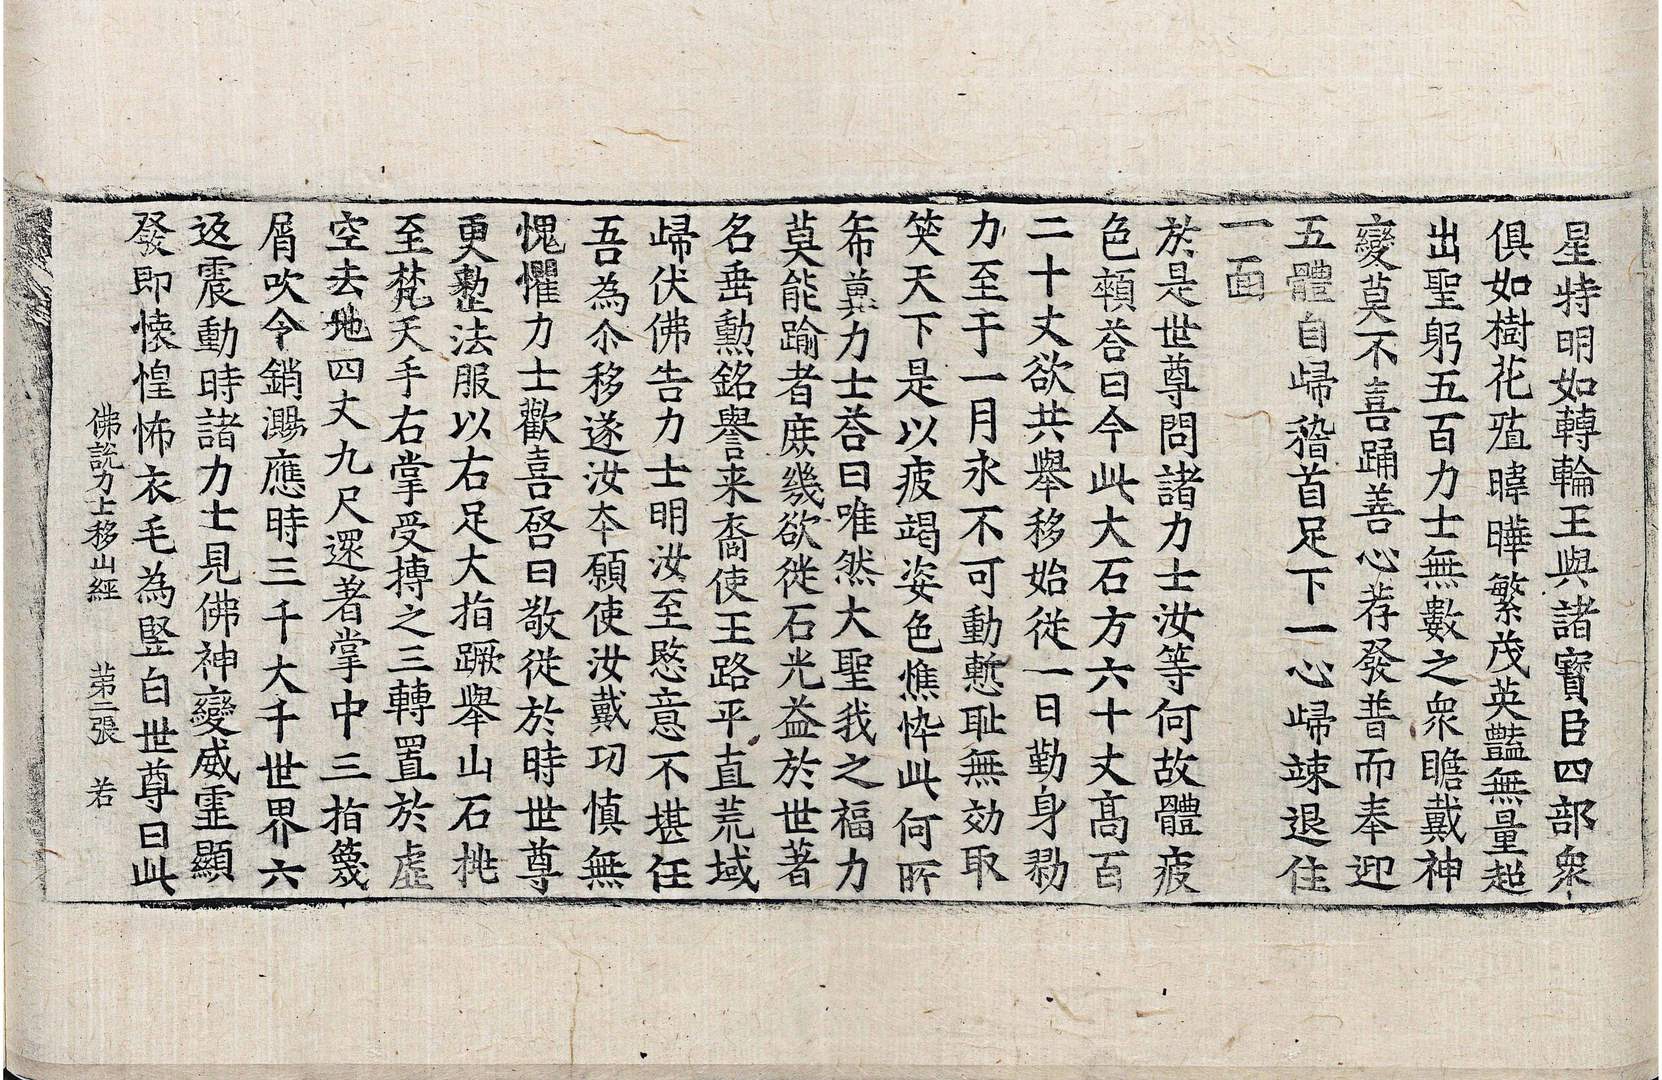 星特明如轉輪王與諸寶臣四部衆
俱如樹花殖暐曄繁茂英豔無量超
出聖躬五百力士無數之衆瞻戴神
變莫不喜踊善心荐發普而奉迎
五體自歸稽首足下一心歸竦退住
一面
於是世尊問諸力士汝等何故體疲
色顇荅曰今此大石方六十丈高百
二十丈欲共舉移始從一日勤身勠
力至于一月永不可動慙耻無効取
笑天下是以疲竭姿色憔悴此何所
希冀力士荅曰唯然大聖我之福力
莫能踰者庶幾欲從石光益於世著
名垂勲銘譽来裔使王路平直荒域
歸伏佛告力士明汝至愍意不堪任
吾為尒移遂汝夲願使汝戴功慎無
愧懼力士歡喜啓曰敬從於時世尊
更整法服以右足大指蹶舉山石挑
至梵天手右掌受摶之三轉置於虛
空去地四丈九尺還著掌中三指篾
屑吹令銷灦應時三千大千世界六
返震動時諸力士見佛神變威霊顯
發即懐惶怖衣毛為竪白世尊曰此
佛說力士移山經 苐二張 若